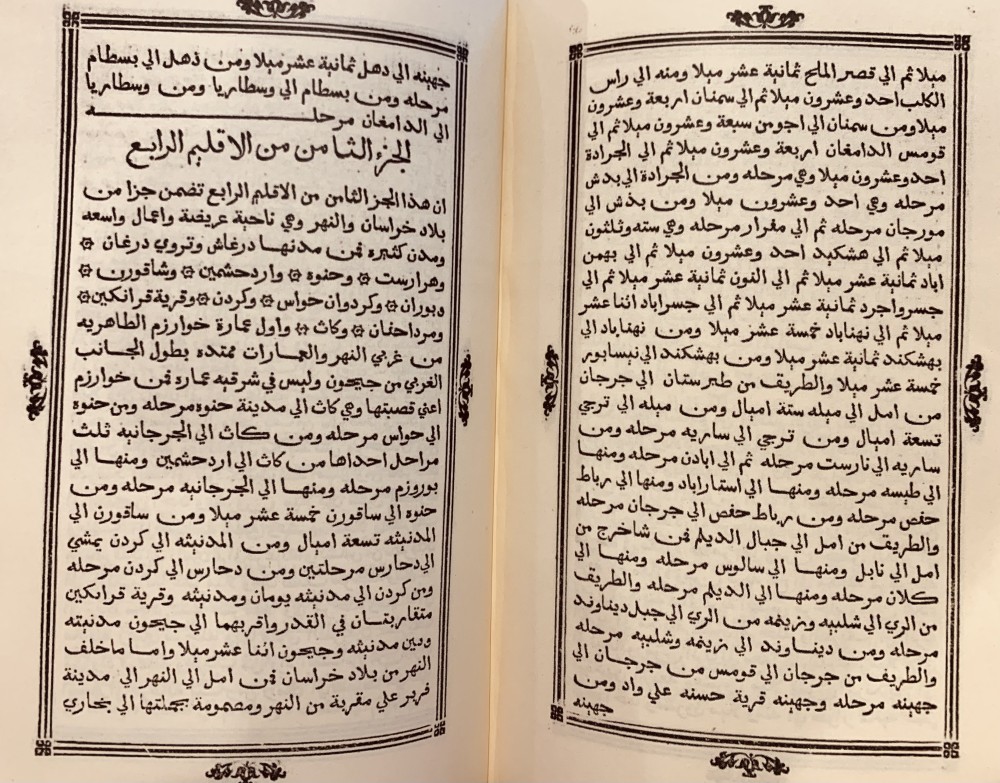 ميلا ثم الي قصر الملح ثمانية عشر ميلا ومنه الي راس
الكلب احد وعشرون ميلا ثم الي سمنان اربعة وعشرون
ميلا ومن سمنان الي اجومن سبعة وعشرون ميلا ثم الي
قومس الدامغان اربعة وعشرون ميلا ثم الي الجرادة
احد وعشرون ميلا وهي مرحله ومن الجرادة الي بدش
مرحله وهي احد وعشرون ميلا ومن بدش الي
مورجان مرحله ثم الي مغرار مرحله وهي سته وثلثون
ميلا ثم الي هشكيد احد وعشرون ميلا ثم الي بهمن
اباد ثمانية عشر ميلا ثم الي النون ثمانية عشر ميلا ثم الي
جسر واجرد ثمانية عشر ميلا ثم الي جسراباد اثنا عشر
ميلا ثم الي نهناباد خمسة عشر ميلا ومن نهناباد الي
بهشكند ثمانية عشر ميلا ومن بهشكند الي نيسابور
خمسة عشر ميلا والطريف من طبرستان الي جرجان
من امل الي ميله ستة اميال ومن ميله الي ترجي
تسعة اميال ومن ترجي الي ساريه مرحله ومن
ساريه الي نارست مرحله ثم الي ابادن مرحله ومنها
الي طبسه مرحله ومنها الي استاراباد ومنها الي رباط
حفص مرحله ومن رباط حفص الي جرجان مرحله
والطريف من امل الي جبال الديلم فمن شاخرج من
امل الي نابل ومنها الي سالوس مرحله ومنها الي
كلان مرحله ومنها الي الديلم مرحله والطريف
من الري الي شلبيه وزيمه من الري الي جبل ديناوند
مرحله ومن ديناوند الي زيمه وشلبيه مرحله
والطريف من جرجان الي قومس من جرجان الي
جهينه مرحله وجهينه قرية حسنه علي واد ومن
جهينه
جهينه الي دهل ثمانية عشر ميلا ومن ذهل الي بسطام
مرحله ومن بسطام الي وسطاريا ومن وسطاريا
الي الدامغان مرحله
الجزء الثامن من الاقليم الرابع
ان هذا الجز الثامن من الاقليم الرابع تضمن جزا من
بلاد خراسان والنهر وهي ناحية عريضة واعمال واسعه
ومدن كثيره فمن مدنها درغاش وتروي درغمان
وهرارست وحنوه واردحشمين وشاقورن
دبوران وكردوان حواس وكردن وقرية قرانكين
ومرداحفان وكاث واول عمارة خوارزم الطاهريه
من غربي النهر والعمارات ممتده بطول الجانب
الغربي من جيحون وليس في شرقيه عماره فمن خوارزم
اعني قصبتها وهي كاث الي مدينة حنوه مرحله ومن حنوه
الي حواس مرحله ومن كاث الي الجرجانيه ثلث
مراحل احداها من كاث الي اردحشمين ومنها الي
بوروزم مرحله ومنها الي الجرجانيه مرحله ومن
حنوه الي ساقورن خمسة عشر ميلا ومن ساقورن الي
المدنيثه تسعة اميال ومن المدنيثه الي كردن يمشي
الي دحارس مرحلتين ومن دحارس الي كردن مرحله
ومن كردن الي مدنيثه يومان ومدنيثه وقرية قرانكين
متقاربتان في القدر واقربهما الي جيحون مدنيثه
وبين مدنيثه وجيحون اثنا عشر ميلا واما ما خلف
النهر من بلاد خراسان فمن امل الي النهر الي مدينة
فربر علي مقربة من النهر ومصمومة بجملتها الي بخاري